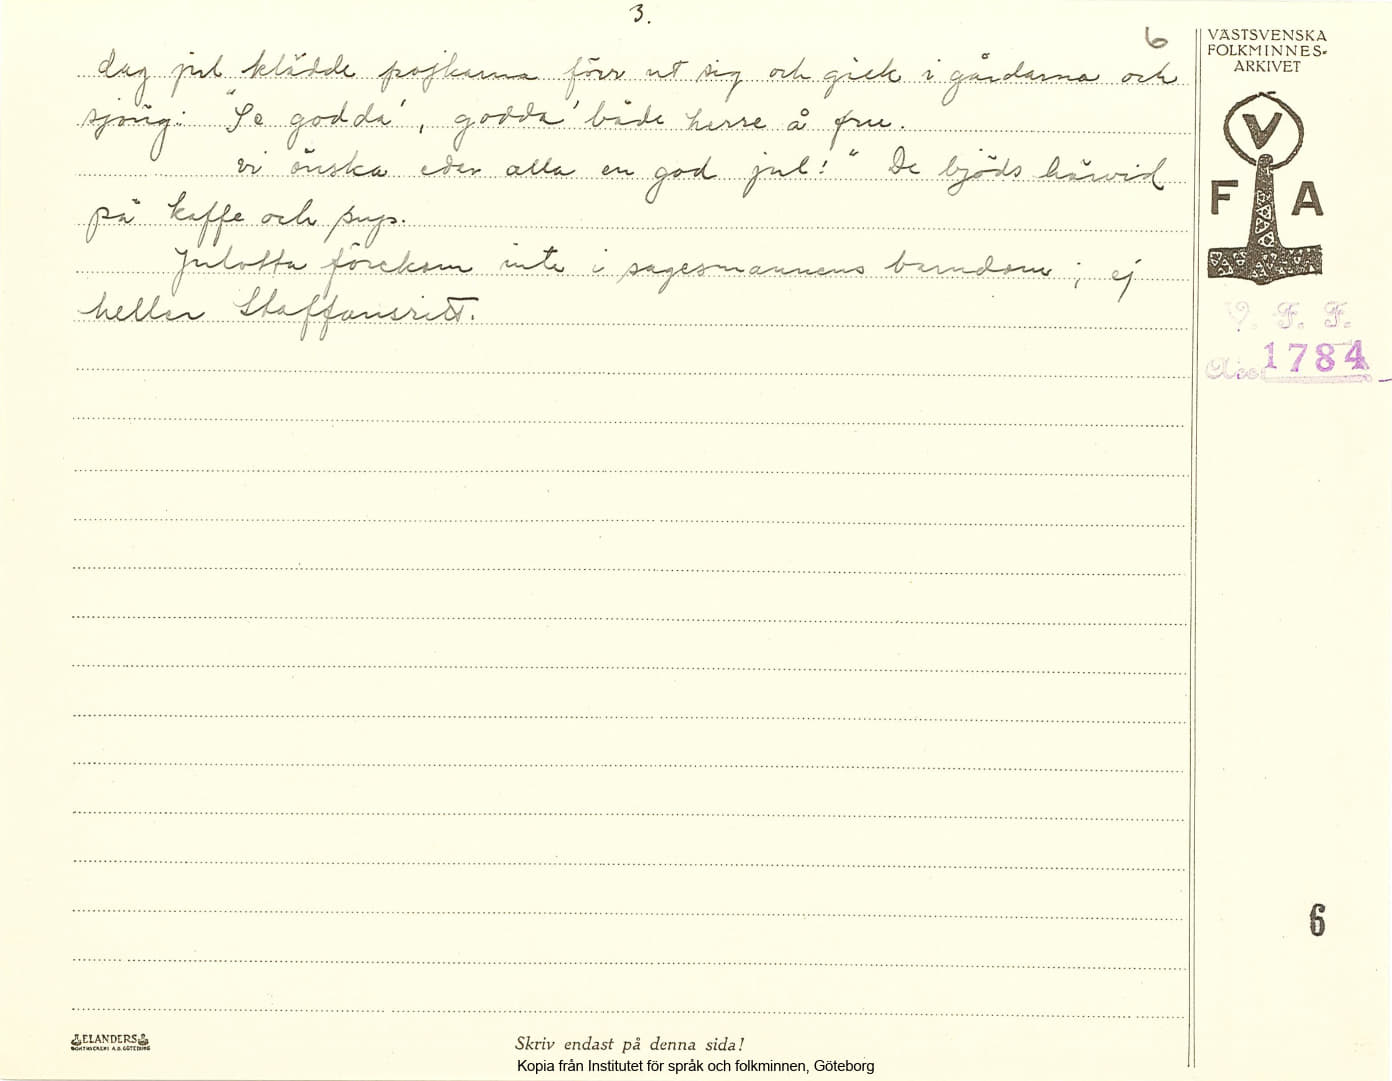 3.
6
VÄSTSVENSKA
FOLKMINNES-
ARKIVET
dag jul klädde pojkarna förr ut sig och gick i gårdarna och
sjöng: "Se godda', godda' både herre å frue.
vi önska eder alla en god jul!" De bjöds härvid
på kaffe och sups.
Julotta förekom inte i sagesmannens barndom; ej
heller Staffansritt.
V
F A
V. F. F.
Acc. 1784
6
ELANDERS
BOKTRYCKERI A.B. GÖTEBORG
Skriv endast på denna sida!
Kopia från Institutet för språk och folkminnen, Göteborg